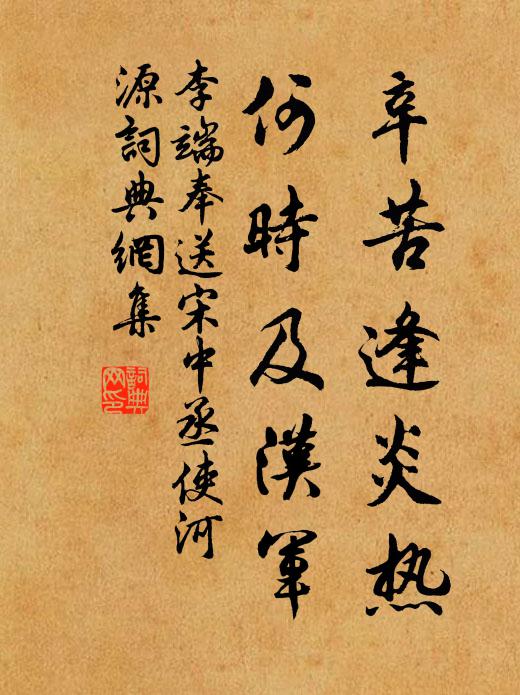 辛苦逢炎热
何時及漢軍
李端奉送宋中丞使河
源詞典網集
詞典
网印